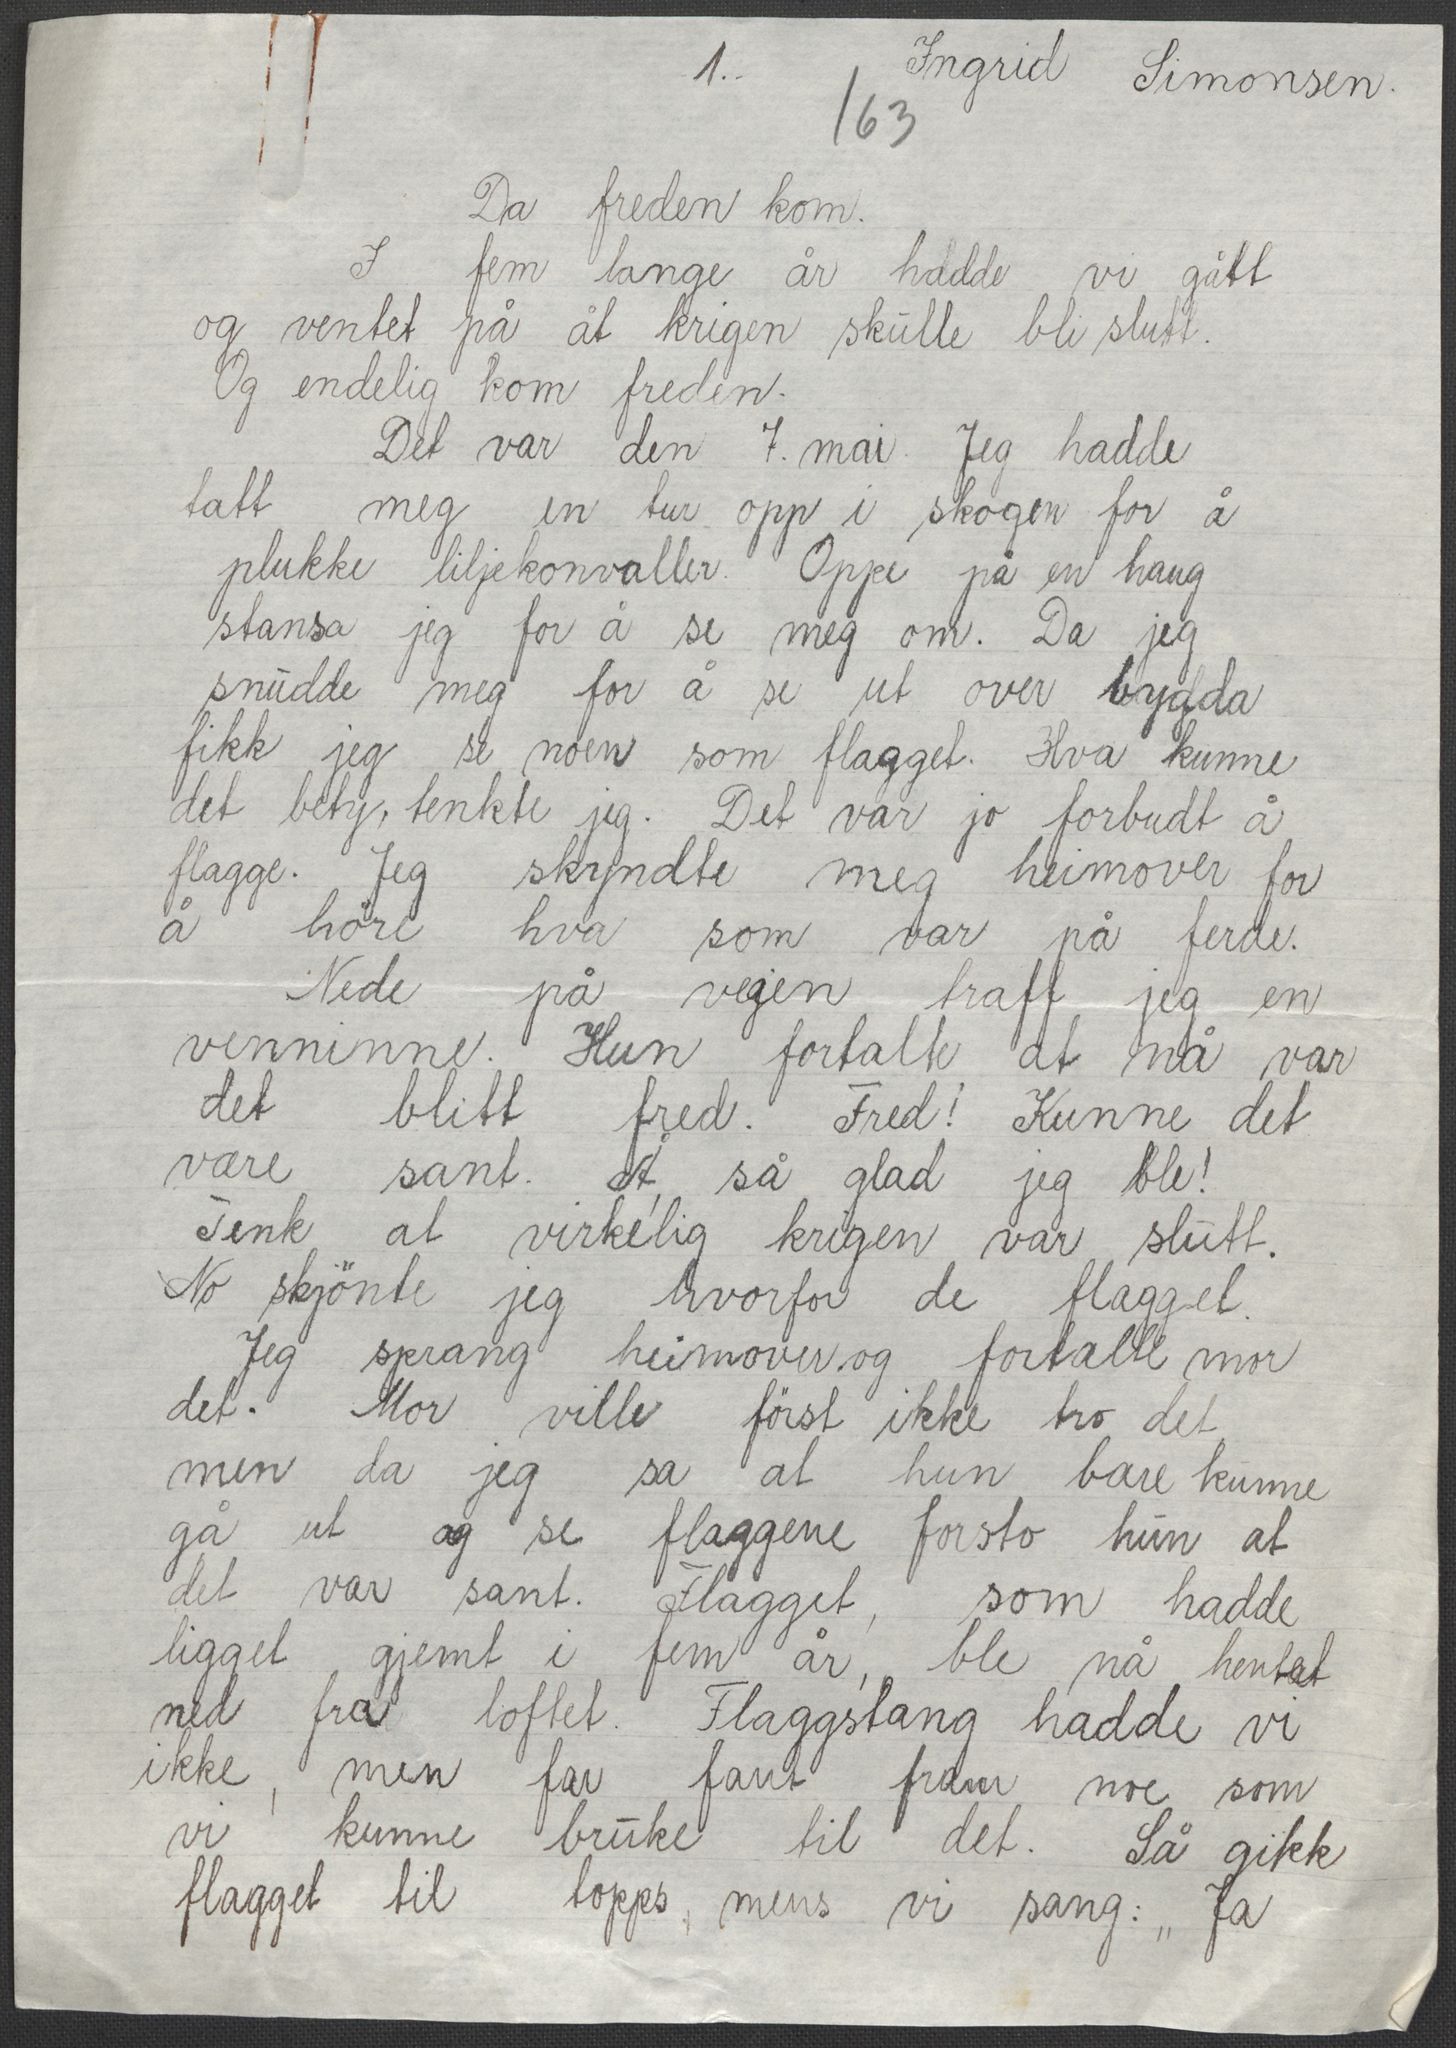 1.. Ingrid Simonsen.
163
Da freden kom.
I fem lange år hadde vi gått
og ventet på åt krigen skulle bli slutt.
Og endelig kom freden.
Det var den 7. mai. Jeg hadde
tatt meg en tur opp i skogen for å
plukke liljekonvaller. Oppe på en haug
stansa jeg for å se meg om. Da jeg
snudde meg for å se ut over bygda
fikk jeg se noen som flagget. Hva kunne
det bety, tenkte jeg. Det var jo forbudt å
flagge. Jeg skyndte meg heimover for
å höre hva som var på ferde.
Nede på vejen traff jeg en
venninne. Hun fortalte at nå var
det blitt fred. Fred! Kunne det
være sant. Å, så glad jeg ble!
Tenk at virkelig krigen var slutt.
No skjönte jeg hvorfor de flagget.
Jeg sprang heimover og fortalte mor
det. Mor ville först ikke tro det,
men da jeg sa at hun bare kunne
gå ut og se flaggene forsto hun at
det var sant. Flagget, som hadde
ligget gjemt i fem år, ble nå hentet
ned fra loftet. Flaggstang hadde vi
ikke, men far fant fram noe som
vi kunne bruke til det. Så gikk
flagget til topps, mens vi sang: „Ja